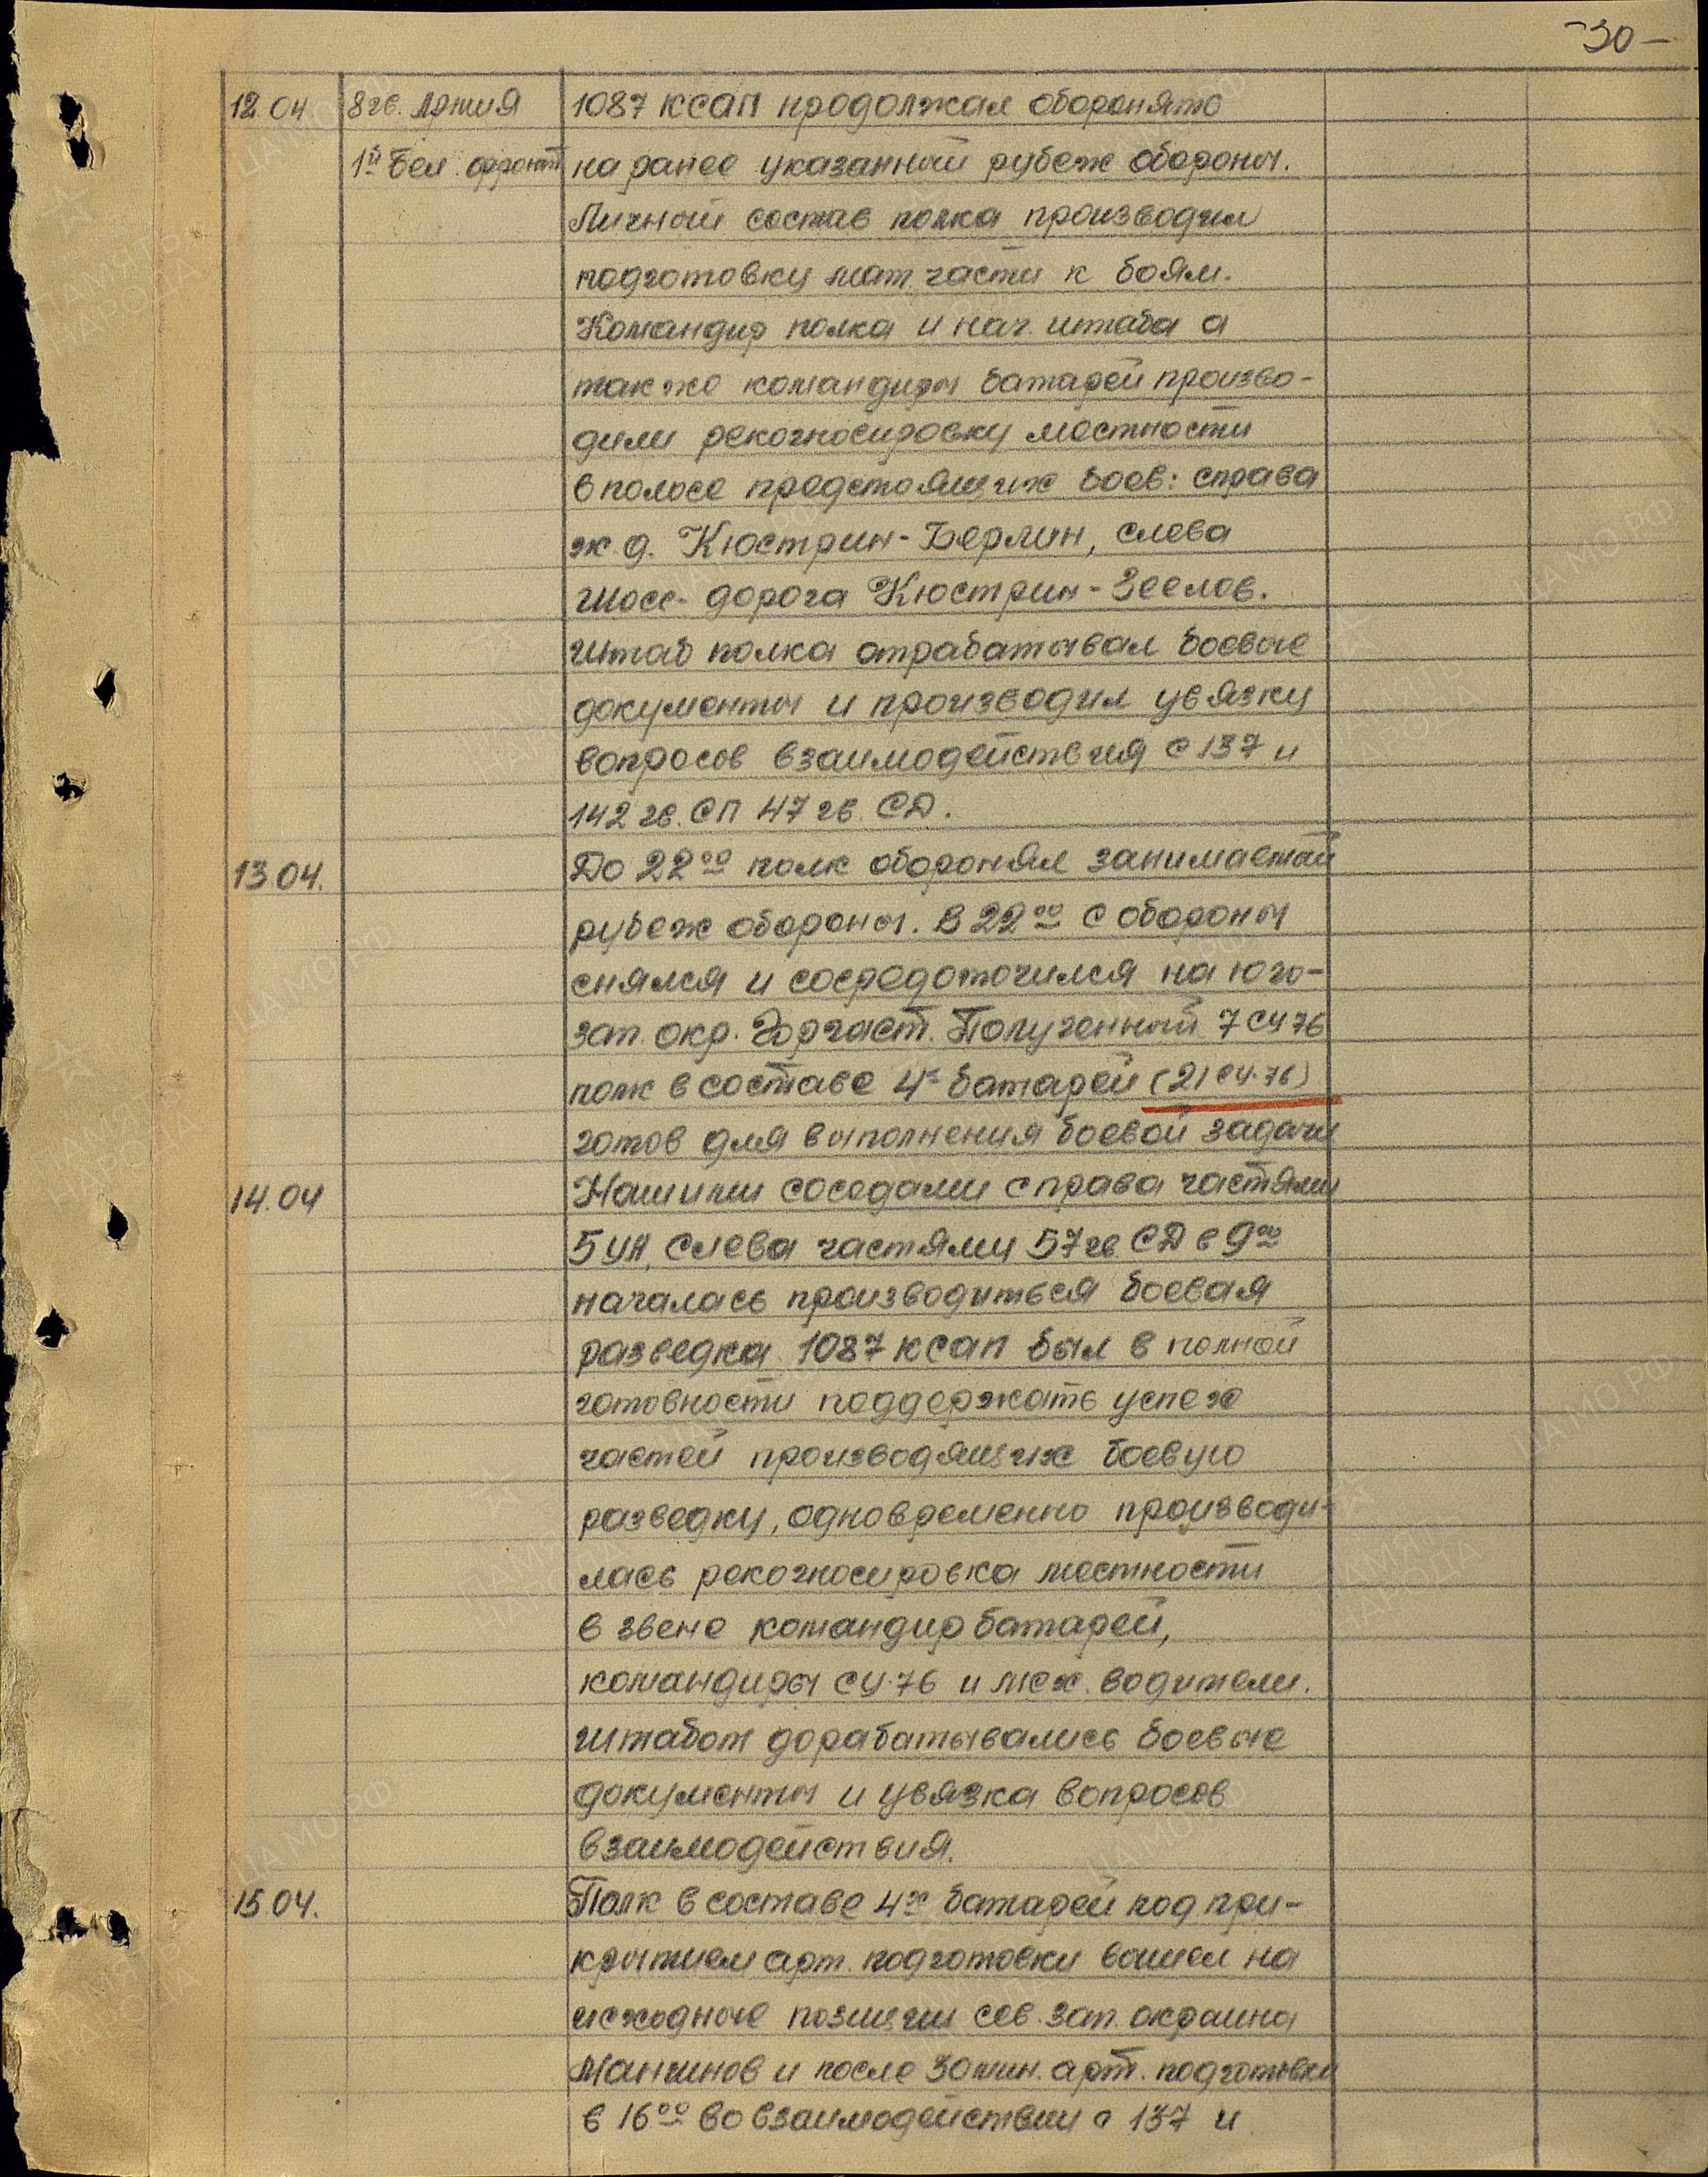 -30-
12.04. 8 гв. Армия 1087 КСАП продолжал оборонять
1й Бел. фронт на ранее указанный рубеж обороны.
Личный состав полка производил
подготовку мат. части к боям.
Командир полка и нач. штаба а
также командиры батарей произво-
дили рекогносцировку местности
в полосе предстоящих боев: справа
ж.д. Кюстрин-Берлин, слева
шосс. дорога Кюстрин-Зеелов.
Штаб полка отрабатывал боевые
документы и производил увязку
вопросов взаимодействия с 137 и
142 гв. СП 47 гв. СД.
13.04. До 22оо полк оборонял занимаемый
рубеж обороны. В 22оо с обороны
снялся и сосредоточился на юго-
зап. окр. Горгаст. Полученный 7 СУ 76
полк в составе 4х батарей (21 СУ-76)
готов для выполнения боевой задачи
14.04 Нашими соседами справа частями
5 УА, слева частями 57 гв СД в 9оо
началась производиться боевая
разведка. 1087 КСАП был в полной
готовности поддержать успех
частей производящих боевую
разведку, одновременно производи-
лась рекогносцировка местности
в звене командир батарей,
командиры СУ-76 и мех. водители.
Штабом дорабатывались боевые
документы и увязка вопросов
взаимодействия.
15.04. Полк в составе 4х батарей под при-
крытием арт. подготовки вышел на
исходные позиции сев. зап. окраина
Манчинов и после 30 мин. арт. подготовки
в 16оо во взаимодействии с 137 и